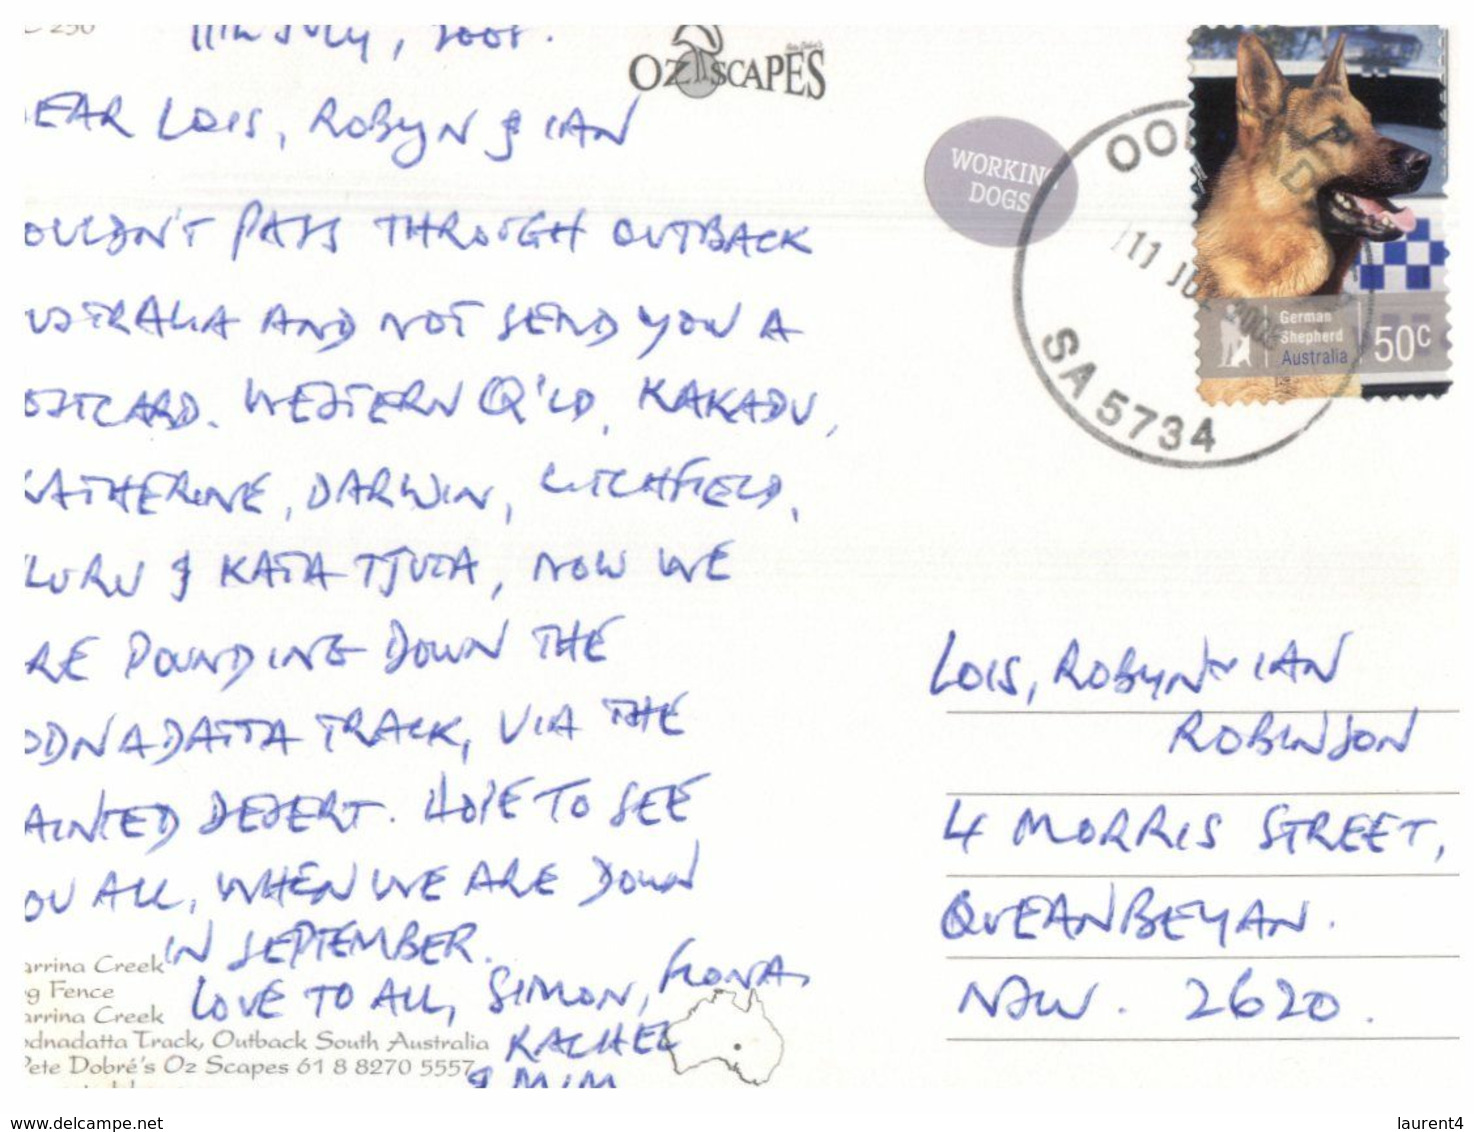 11TH JULY, 2008.
OZ SCAPES
EAR LOIS, ROBYN & IAN
OULDN'T PASS THROUGH OUTBACK
USTRALIA AND NOT SEND YOU A
OSTCARD. WESTERN Q'LD, KAKADU,
KATHERINE, DARWIN, LITCHFIELD,
ULURU & KATA TJUTA, NOW WE
ARE POUNDING DOWN THE
OODNADATTA TRACK, VIA THE
AINTED DESERT. HOPE TO SEE
OU ALL, WHEN WE ARE DOWN
IN SEPTEMBER.
LOVE TO ALL, SIMON, FIONA,
RACHEL
& MIM
arrina Creek
g Fence
arrina Creek
odnadatta Track, Outback South Australia
Pete Dobré's Oz Scapes 61 8 8270 5557
WORKING
DOGS
11 JUL 2008
SA 5734
German
Shepherd
Australia
50c
LOIS, ROBYN & IAN
ROBINSON
4 MORRIS STREET,
QUEANBEYAN.
NSW. 2620.
www.delcampe.net
laurent4